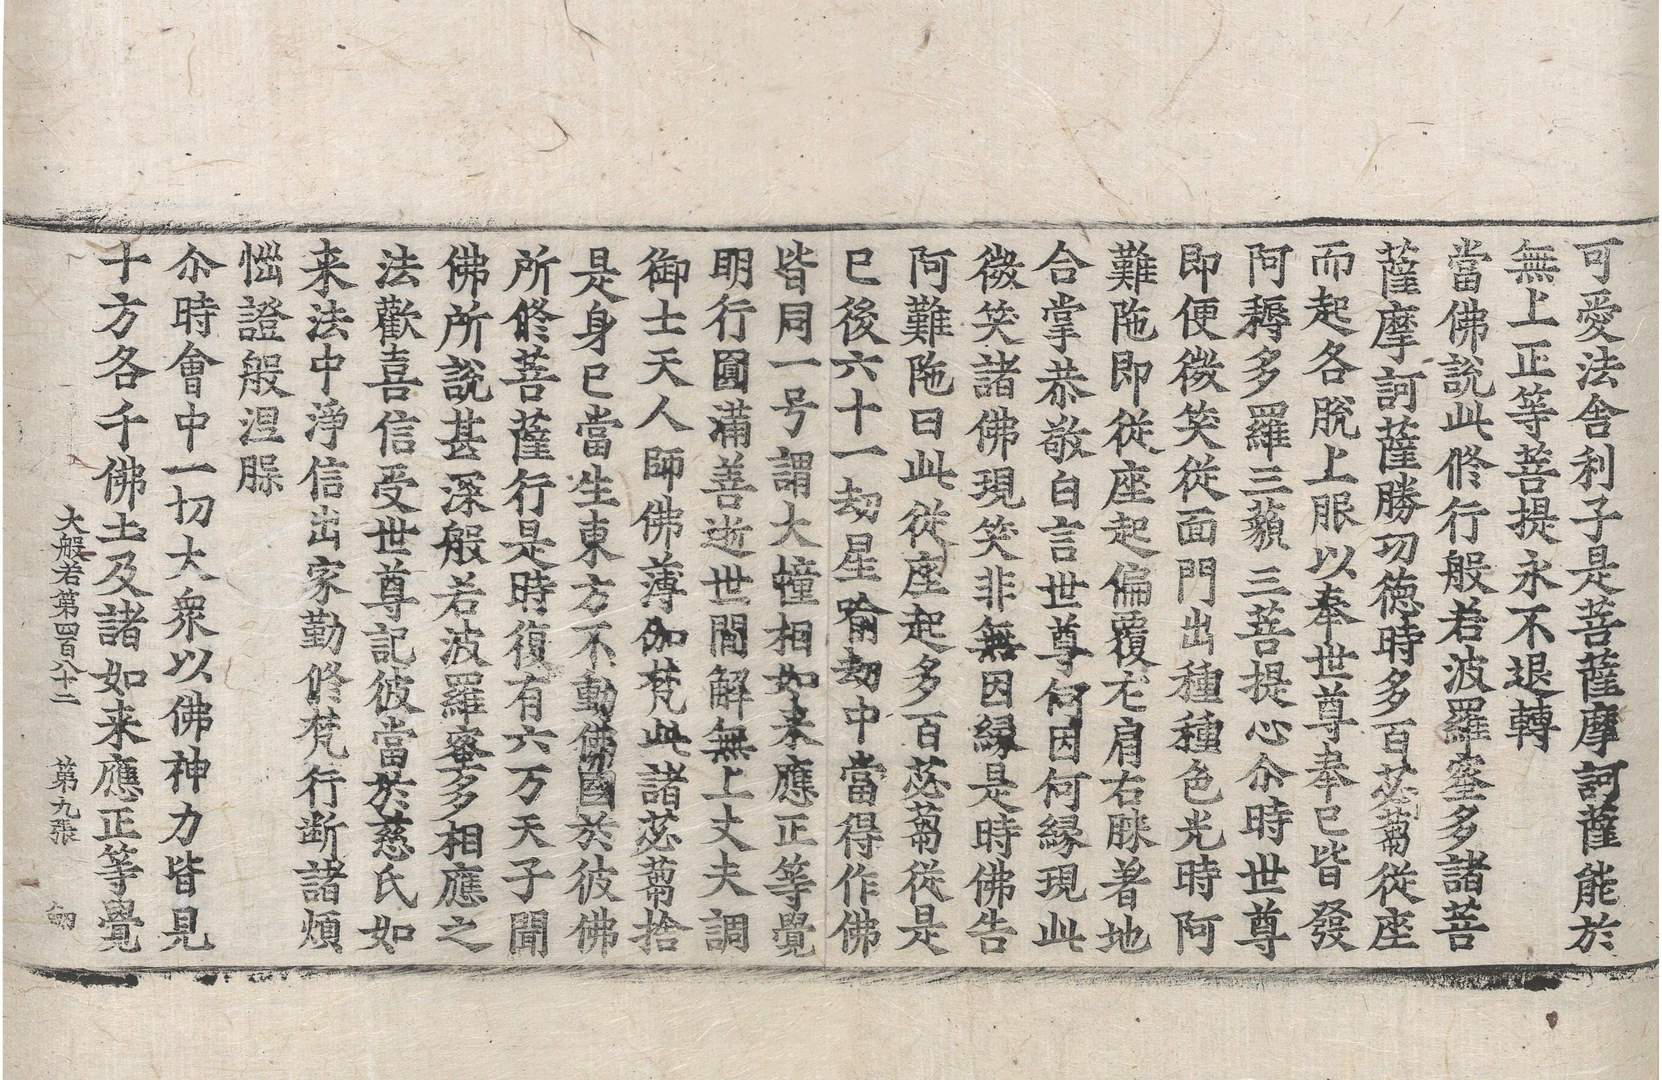 可愛法舍利子是菩薩摩訶薩能於
無上正等菩提永不退轉
當佛說此修行般若波羅蜜多諸菩
薩摩訶薩勝功德時多百苾蒭從座
而起各脫上服以奉世尊奉已皆發
阿耨多羅三藐三菩提心尒時世尊
即便微笑從面門出種種色光時阿
難陁即從座起偏覆左肩右膝著地
合掌恭敬白言世尊何因何緣現此
微笑諸佛現笑非無因緣是時佛告
阿難陁曰此從座起多百苾蒭從是
已後六十一劫星喻劫中當得作佛
皆同一号謂大幢相如来應正等覺
明行圓滿善逝世間解無上丈夫調
御士天人師佛薄伽梵此諸苾蒭捨
是身已當生東方不動佛國於彼佛
所修菩薩行是時復有六万天子聞
佛所說甚深般若波羅蜜多相應之
法歡喜信受世尊記彼當於慈氏如
来法中淨信出家勤修梵行断諸煩
惱證般涅槃
尒時會中一切大衆以佛神力皆見
十方各千佛土及諸如来應正等覺
大般若第四百八十二 第九張 劒